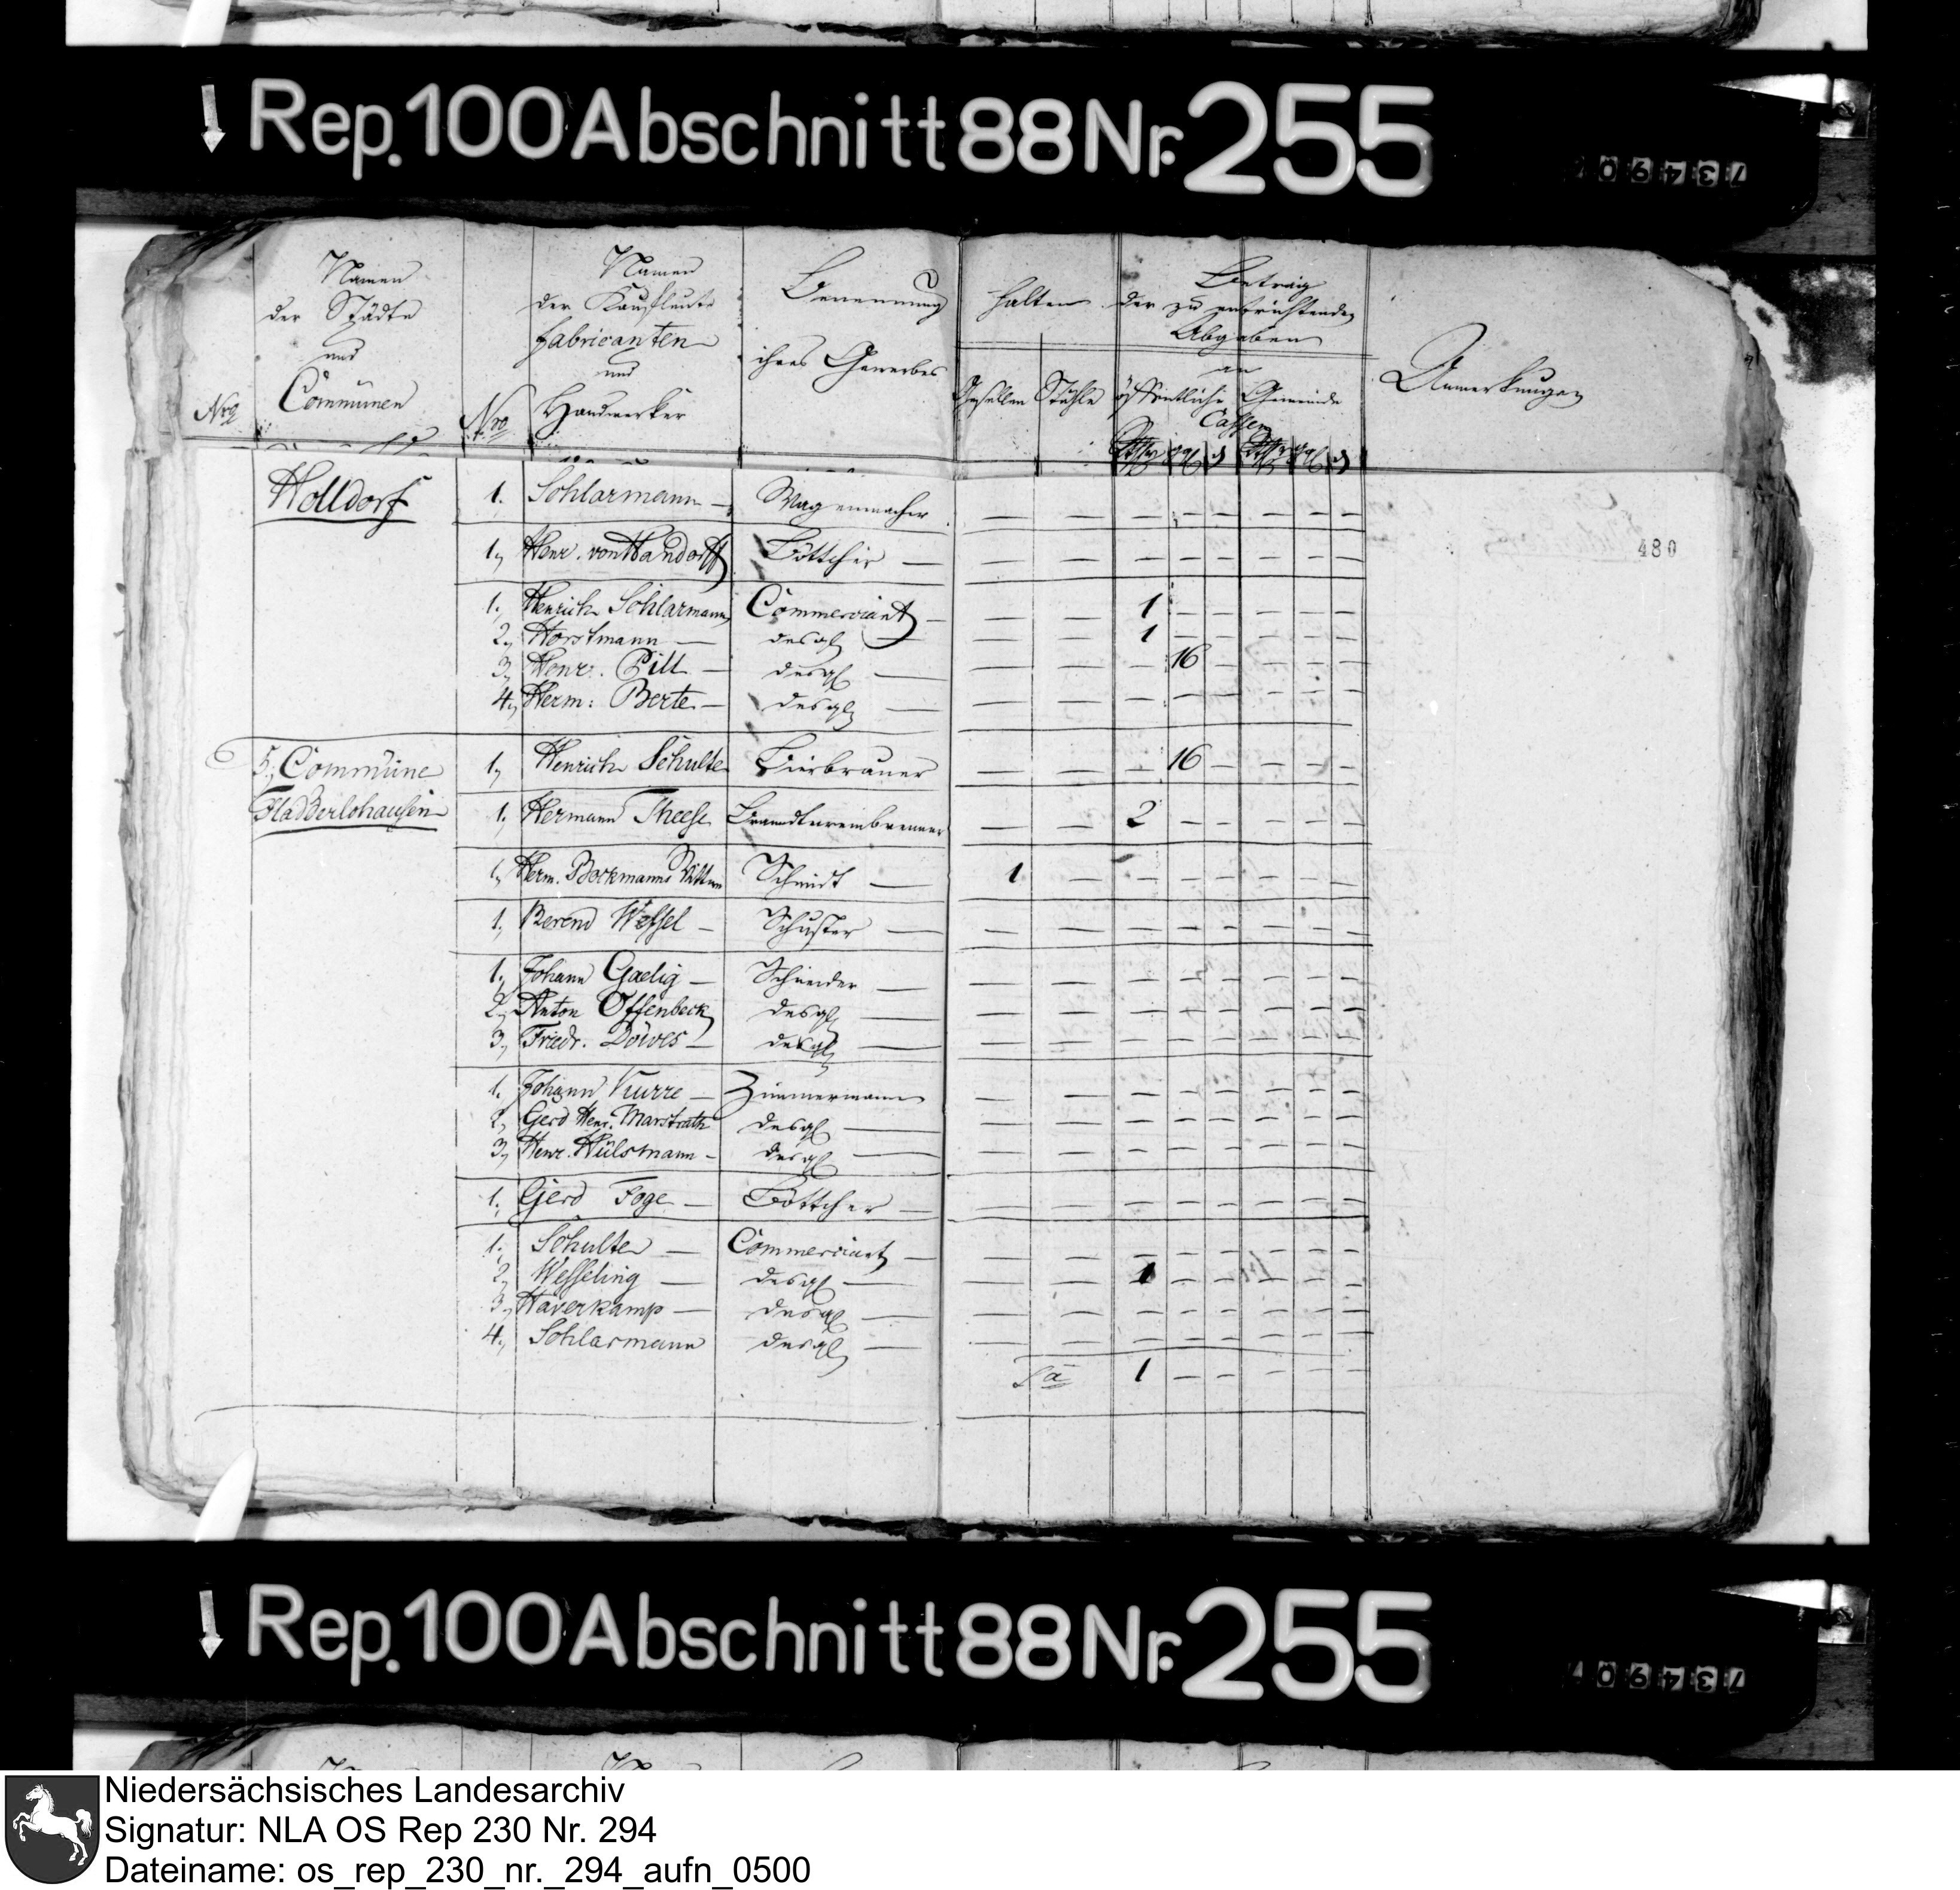 Rep. 100 Abschnitt 88 Nr. 255
Nro
Namen
der Städte
und
Communen
Nro
Namen
der Kaufleute
Fabricanten
und
Handwerker
Benennung
ihres Gewerbes
halten
Gesellen Stühle
Betrag
der zu entrichtenden
Abgaben
an
öffentliche Gemeinde
Cassen
Anmerkungen
480
Holldorf 1. Schlarmann — Wagenmacher — — — — — — — —
1, Henr. von Handorff Böttcher — — — — — — — — —
1, Henrich Schlarmann Commerciant — — — 1 — — — — —
2, Horstmann — desgl — — — 1 — — — — —
3, Henr. Pill — desgl — — — — 16 — — — —
4, Herm: Berte — desgl — — — — — — — — —
5, Commüne 1, Henrich Schulte Bierbrauer — — — 16 — — — —
Fladderlohausen 1, Hermann Theese Brandtweinbrenner — — 2 — — — — —
1, Herm. Bockmanns Schmidt — 1 — — — — — — —
1, Berend Wessel — Schuster — — — — — — — — —
1, Johann Gaelig — Schneider — — — — — — — — —
2, Anton Offenbeck desgl — — — — — — — — —
3, Friedr. Döwes — desgl — — — — — — — — —
1, Johann Kurre — Zimmermann — — — — — — — —
2, Gerd Henr. Marstrath desgl — — — — — — — — —
3, Henr. Hülsmann — desgl — — — — — — — — —
1, Gerd Foge — Böttcher — — — — — — — — —
1, Schulte — Commerciant — — — — — — — — —
2, Wesseling — desgl — — — 1 — — — — —
3, Haverkamp — desgl — — — — — — — — —
4, Schlarmann desgl — — — — — — — — —
Sa 1 — — — — —
Rep. 100 Abschnitt 88 Nr. 255
Niedersächsisches Landesarchiv
Signatur: NLA OS Rep 230 Nr. 294
Dateiname: os_rep_230_nr._294_aufn_0500